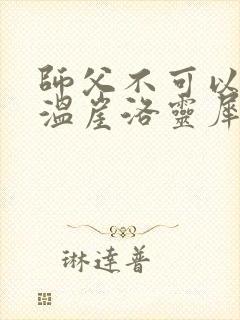 師父不可以
溫崖洛靈犀
琳達普